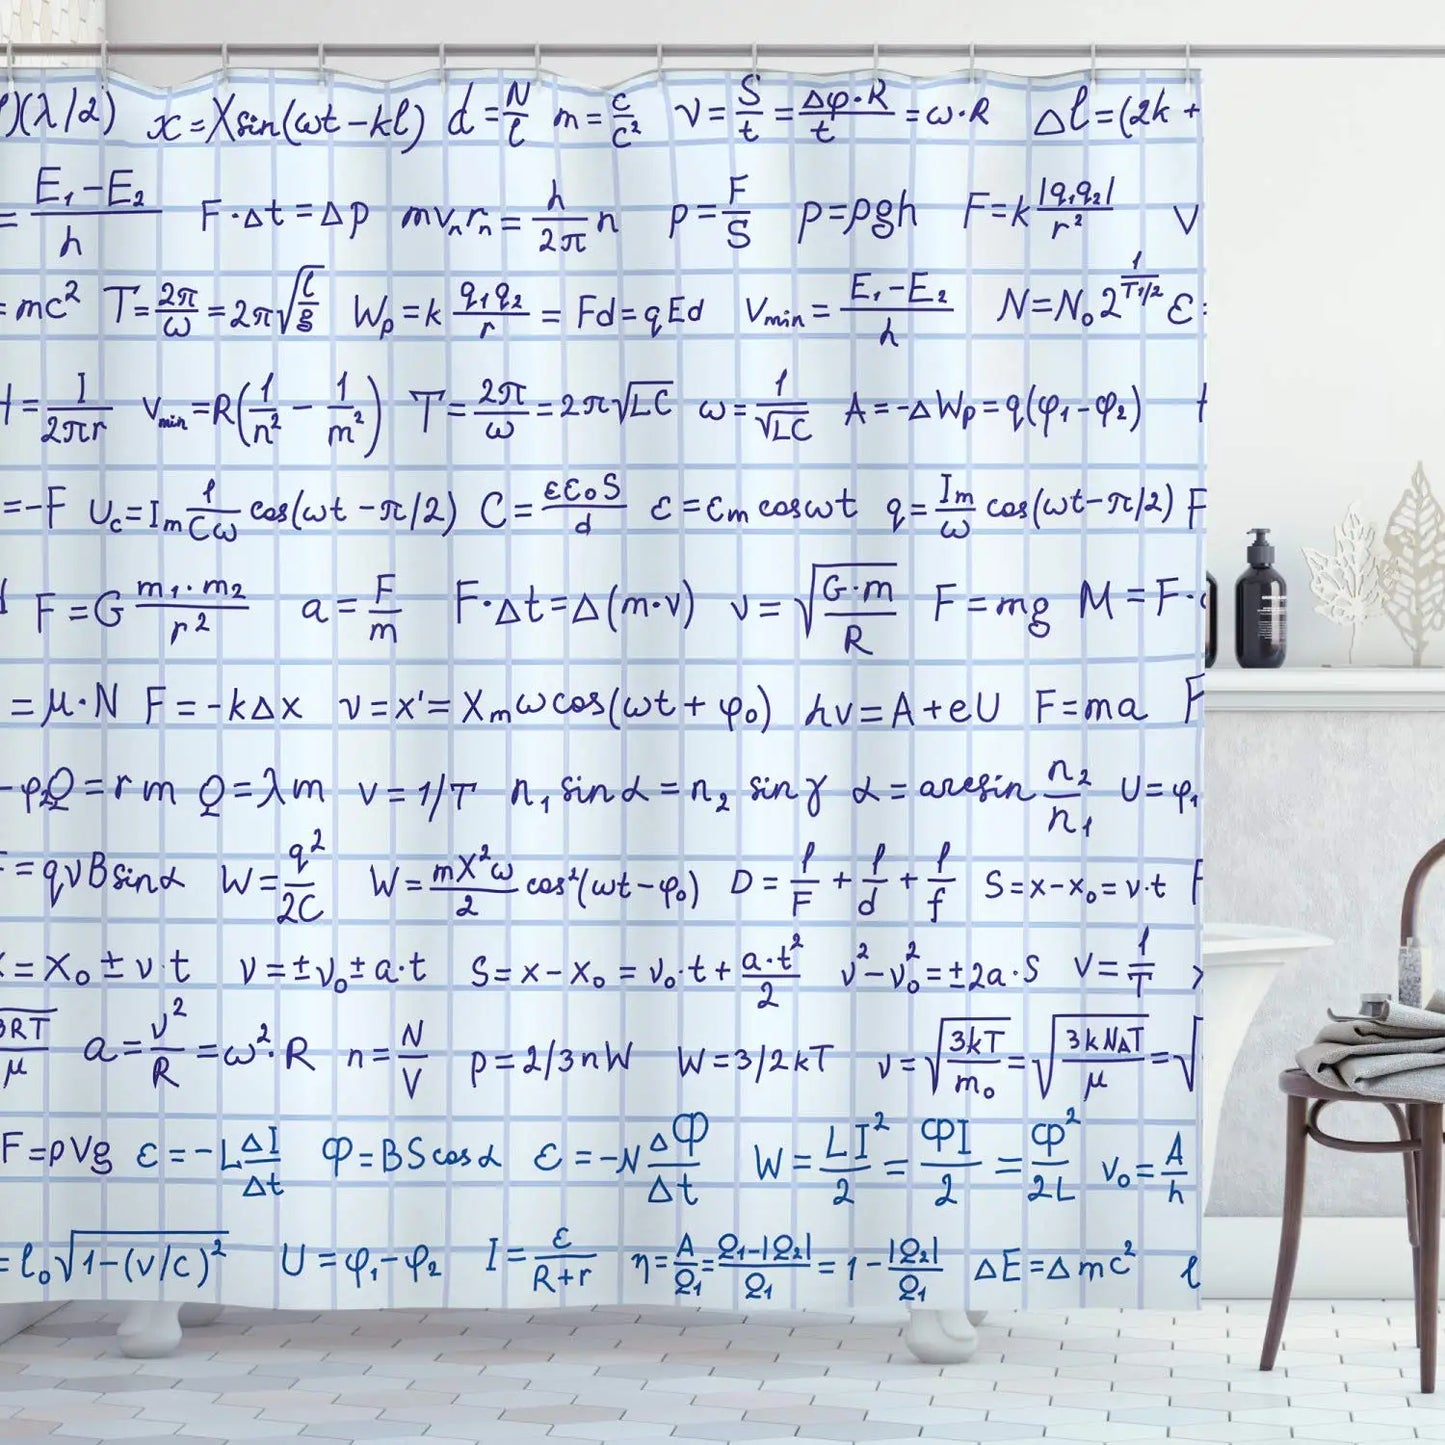 )(λ/2) x=Xsin(ωt-kl) d=N/l m=c/c² v=S/t=Δφ·R/t=ω·R Δl=(2k+
=(E₁-E₂)/h F·Δt=Δp mvₙrₙ=h/2π n p=F/S p=ρgh F=k|q₁q₂|/r² V
=mc² T=2π/ω=2π√(l/g) Wp=k q₁q₂/r=Fd=qEd Vmin=(E₁-E₂)/h N=N₀2^(1/T1/2) ε=
=I/2πr Vmin=R(1/n²-1/m²) T=2π/ω=2π√LC ω=1/√LC A=-ΔWp=q(φ₁-φ₂)
=-F Uc=Im 1/Cω cos(ωt-π/2) C=εε₀S/d ε=εm cosωt q=Im/ω cos(ωt-π/2) F
F=G m₁·m₂/r² a=F/m F·Δt=Δ(m·v) v=√(G·m/R) F=mg M=F·
=μ·N F=-kΔx v=x'=Xmωcos(ωt+φ₀) hv=A+eU F=ma F
-φ₂Q=rm Q=λm v=1/T n₁ sinα=n₂ sinγ α=arcsin n₂/n₁ U=φ₁
=qvBsinα W=q²/2C W=mX²ω/2 cos²(ωt-φ₀) D=1/F+1/d+1/f S=x-x₀=v·t F
=x₀±v·t v=±v₀±a·t S=x-x₀=v₀·t+a·t²/2 v²-v₀²=±2a·S V=1/T
3RT/μ a=v²/R=ω²·R n=N/V p=2/3nW W=3/2kT v=√(3kT/m₀)=√(3kNAT/μ)=√
F=ρVg ε=-LΔI/Δt Φ=BScosα ε=-NΔΦ/Δt W=LI²/2=ΦI/2=Φ²/2L v₀=A/h
=l₀√(1-(v/c)²) U=φ₁-φ₂ I=ε/(R+r) η=A/Q₁=(Q₁-|Q₂|)/Q₁=1-|Q₂|/Q₁ ΔE=Δmc² l